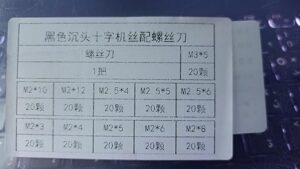 黑色沉头十字机丝配螺丝刀
螺丝刀 M3*5
1把 20颗
M2*10 M2*12 M2.5*4 M2.5*5 M2.5*6
20颗 20颗 20颗 20颗 20颗
M2*3 M2*4 M2*5 M2*6 M2*8
20颗 20颗 20颗 20颗 20颗